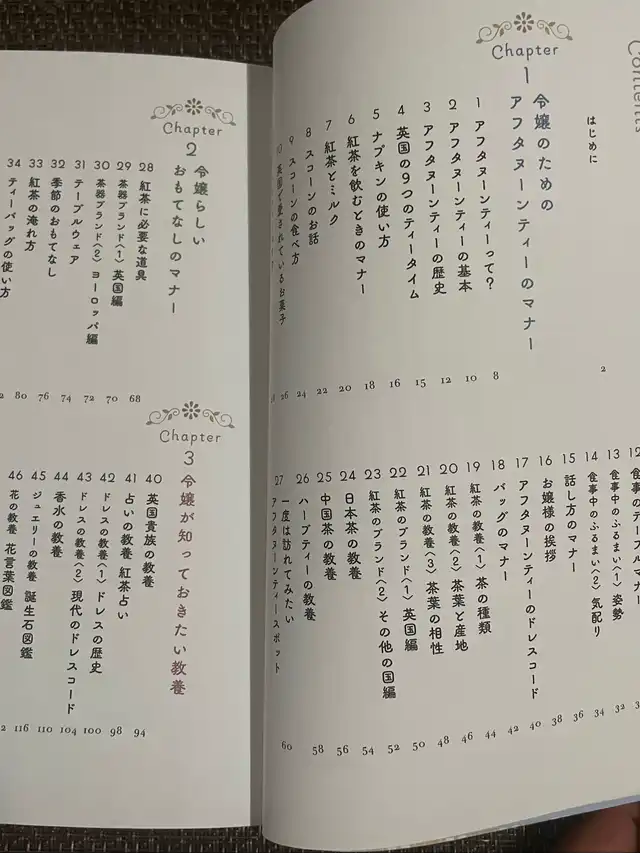 Contents
はじめに 2
Chapter
1
令嬢のための
アフタヌーンティーのマナー
1 アフタヌーンティーって? 8
2 アフタヌーンティーの基本 10
3 アフタヌーンティーの歴史 12
4 英国の9つのティータイム 15
5 ナプキンの使い方 16
6 紅茶を飲むときのマナー 18
7 紅茶とミルク 20
8 スコーンのお話 22
9 スコーンの食べ方 24
10 英国で愛されているお菓子 26
12 食事のテーブルマナー
13 食事中のふるまい〈1〉 姿勢 32
14 食事中のふるまい〈2〉 気配り 34
15 話し方のマナー 36
16 お嬢様の挨拶 38
17 アフタヌーンティーのドレスコード 40
18 バッグのマナー 42
19 紅茶の教養〈1〉 茶の種類 44
20 紅茶の教養〈2〉 茶葉と産地 46
21 紅茶の教養〈3〉 茶葉の相性 48
22 紅茶のブランド〈1〉 英国編 50
23 紅茶のブランド〈2〉 その他の国編 52
24 日本茶の教養 54
25 中国茶の教養 56
26 ハーブティーの教養 58
27 一度は訪れてみたい
アフタヌーンティースポット 60
Chapter
2
令嬢らしい
おもてなしのマナー
28 紅茶に必要な道具 68
29 茶器ブランド〈1〉 英国編 70
30 茶器ブランド〈2〉 ヨーロッパ編 72
31 テーブルウェア 74
32 季節のおもてなし 76
33 紅茶の淹れ方 80
34 ティーバッグの使い方
Chapter
3
令嬢が知っておきたい教養
40 英国貴族の教養 94
41 占いの教養 紅茶占い 98
42 ドレスの教養〈1〉 ドレスの歴史 100
43 ドレスの教養〈2〉 現代のドレスコード 104
44 香水の教養 110
45 ジュエリーの教養 誕生石図鑑 116
46 花の教養 花言葉図鑑